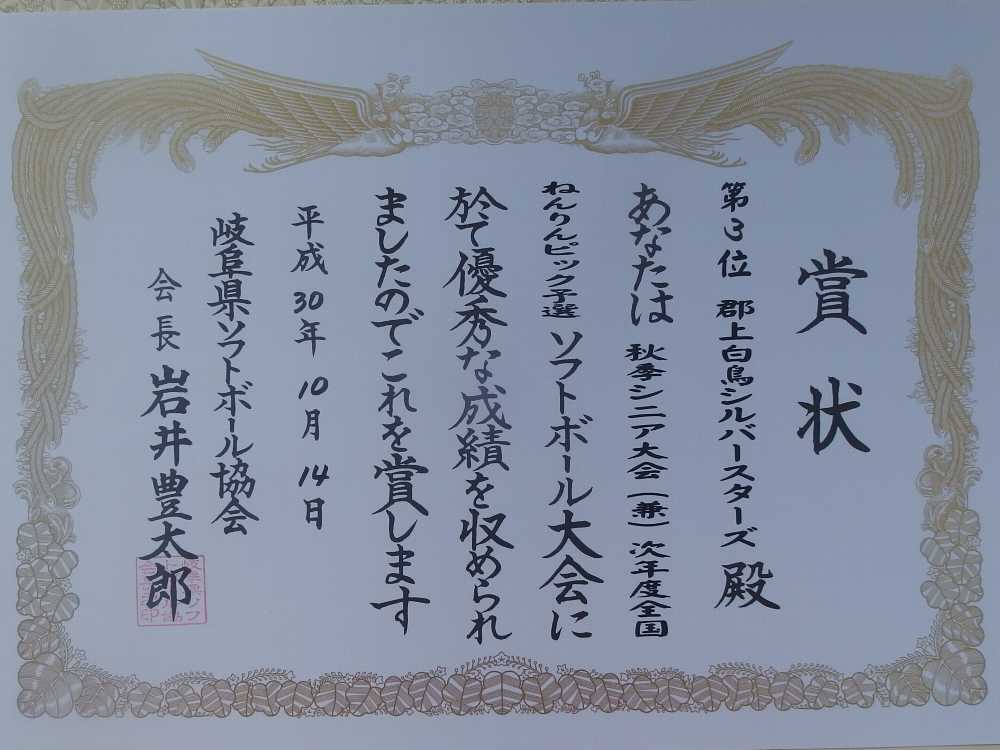 賞状
第3位 郡上白鳥シルバースターズ 殿
あなたは 秋季シニア大会(兼)次年度全国
ねんりんピック予選 ソフトボール大会に
於て優秀な成績を収められ
ましたのでこれを賞します
平成30年10月14日
岐阜県ソフトボール協会
会長 岩井豊太郎